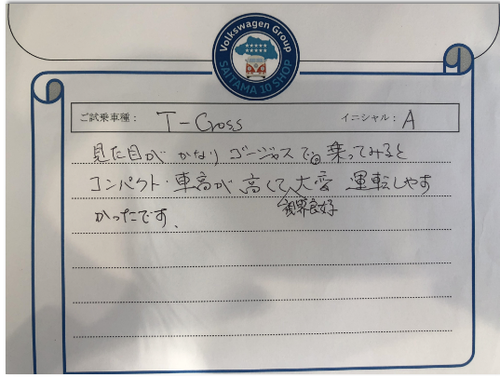 Volkswagen Group
SAITAMA 10 SHOP
ご試乗車種： T-Cross イニシャル： A
見た目が かなり ゴージャスで。乗ってみると
コンパクト・車高が高くて、大変 運転しやす
視界良好
かったです、